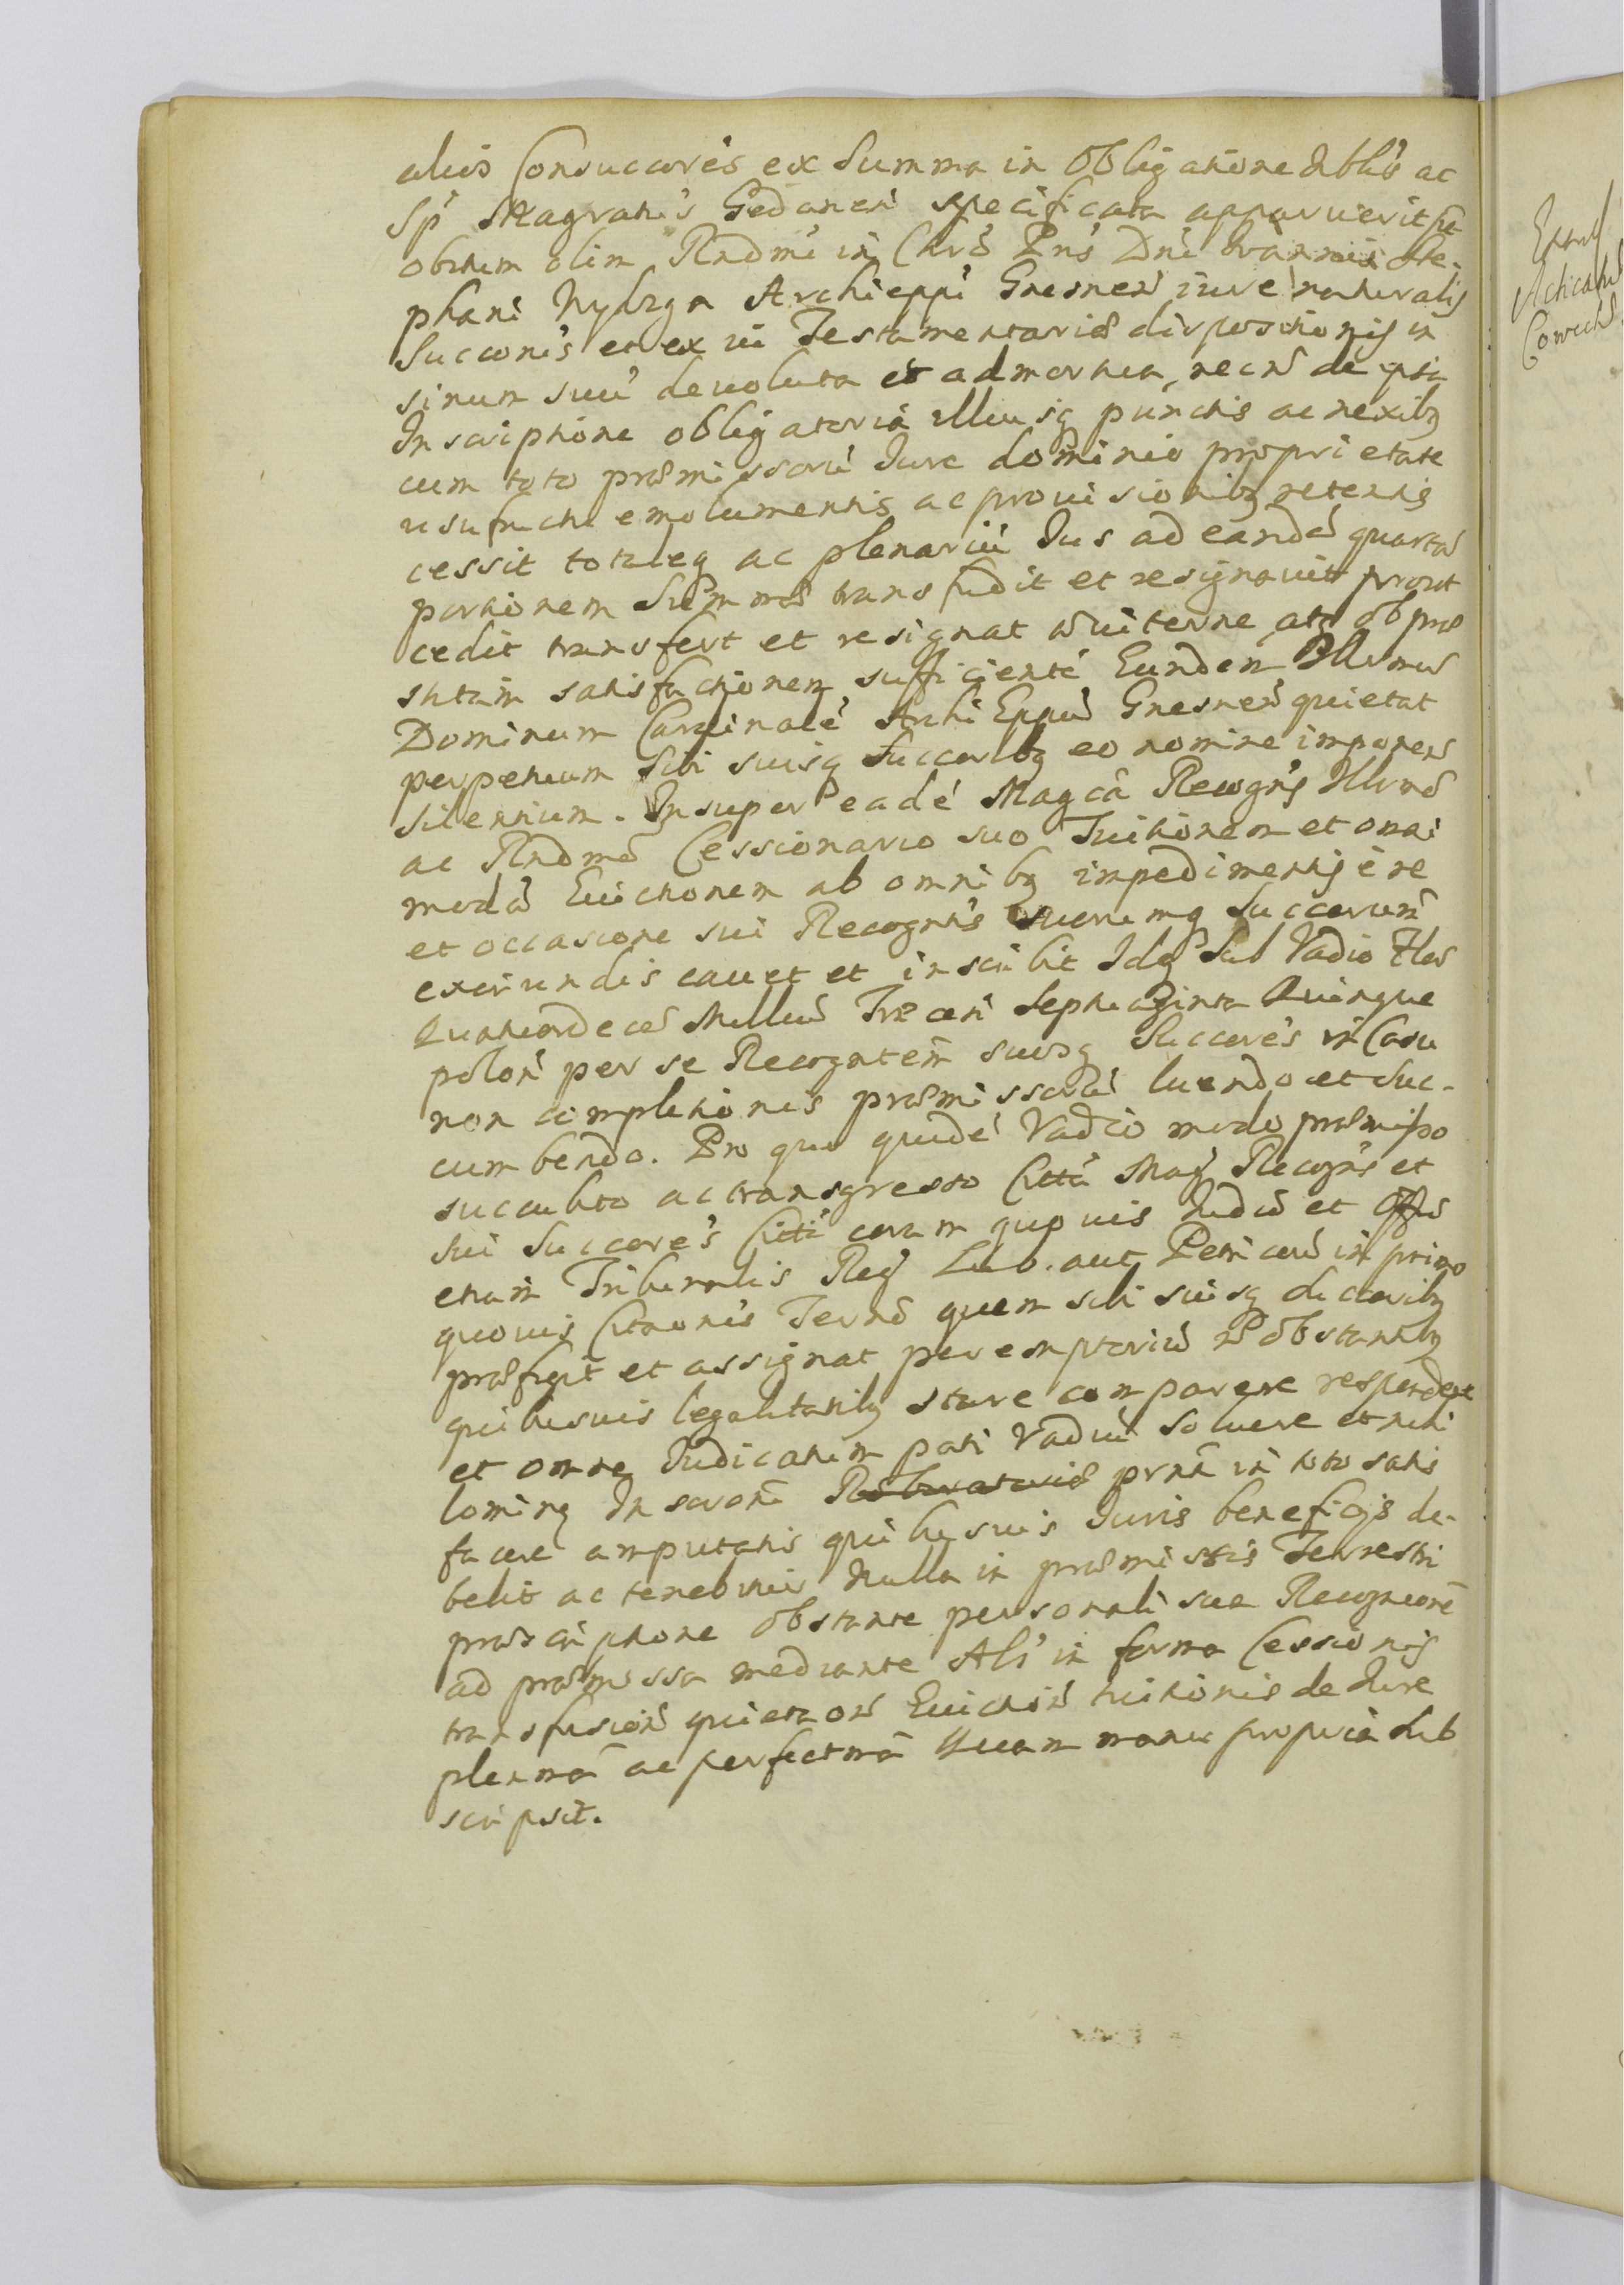 alios Consuccores ex Summa in Obligatione Nblis ac
Sp Magratus Gedanen specificata apparuerit per
obitum olim Rndmi in Chro Pris Dni Joannis Ste-
phani Wydzga Archieppi Gnesnen iure naturalis
Successionis et ex vi Testamentariæ dispositionis in
sinum suu devoluta et admortua, necn de ipsa
Inscriptione obligatoria illiusq punctis ac nexibq
cum toto præmissoru Jure dominio proprietate
usufructu emolumentis ac provisionibq retentis
cessit totaleq ac plenariu Jus ad eande quarta
portionem Summæ transfudit et resignavit prout
cedit transfert et resignat æviterne atq ob præ
stitam satisfactionem sufficiente Eundem Illrmu
Dominum Cardinale Archi Eppu Gnesnen quietat
perpetuum sibi suisq Succorbq eo nomine imponen
silentium. Insuper eade Magca Recogns Illrmo
ac Rndmo Cessionario suo Tuitionem et omni
moda Evictionem ab omnibq impedimentis è re
et occasione sui Recogntis suorumq Succorum
exeiundis cavet et inscribit Idq Sub Vadio Flor
Quatuordece Milliu Trecen Septuaginta Quinque
polon per se Recogntem suosq Succores in Casu
non completionis præmissoru luendo et suc-
cumbendo. Pro quo quide Vadio modo præmisso
succubito ac transgresso Citta Mag Recogns et
sui Succores Citti coram quovis Judo et Offo
etiam Tribunalis Reg Lub. aut Petricou in primo
quovis Citaonis Termo quem sibi suisq Succoribq
præfigit et assignat peremptoriu N obstantibq
quibusvis legalitatibq stare comparere respondere
et omne Judicatum pati Vadiu solvere et nihi
lominq Inscroni prnti in toto satis
facere amputatis quibusvis Juris beneficijs de-
bebit ac tenebitur Nulla in præmissis Terrestri
præscriptione obstante personali sua Recogneone
ad præmissa mediante Als in forma Cessionis
transfusion quietaon Eviction tuitionis de Jure
plenma ac perfectma Quam manu propria Sub
scripsit.